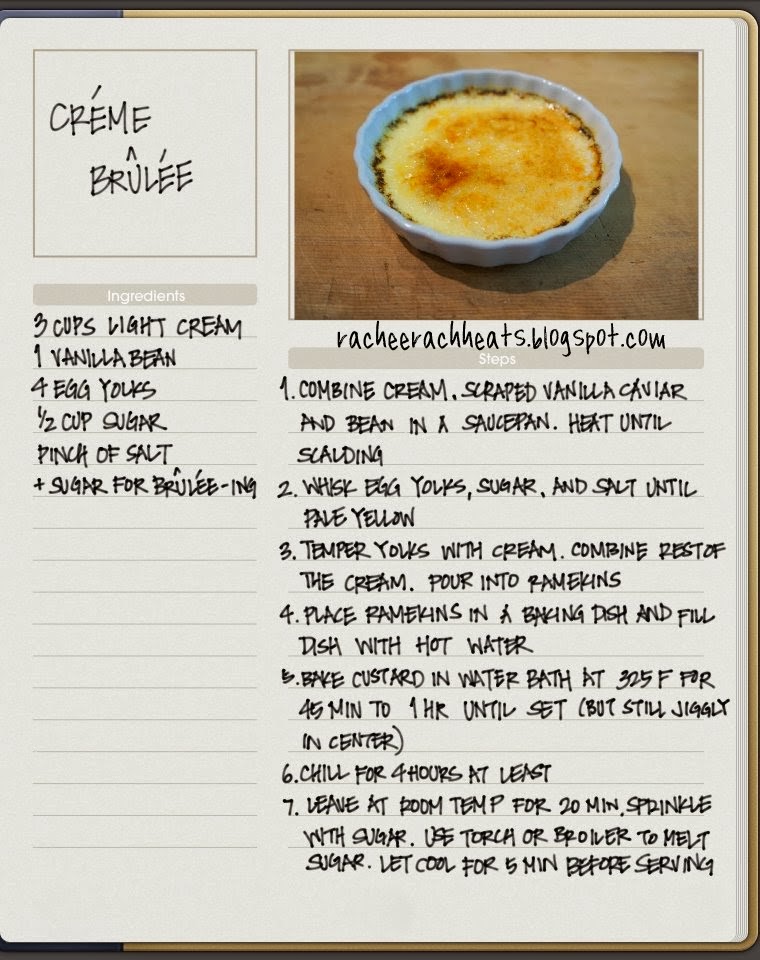 CRÉME
BRÛLÉE
Ingredients
3 CUPS LIGHT CREAM
1 VANILLA BEAN
4 EGG YOLKS
1/2 CUP SUGAR
PINCH OF SALT
+ SUGAR FOR BRÛLÉE-ING
racheerachheats.blogspot.com
Steps
1. COMBINE CREAM, SCRAPED VANILLA CAVIAR
AND BEAN IN A SAUCEPAN. HEAT UNTIL
SCALDING
2. WHISK EGG YOLKS, SUGAR, AND SALT UNTIL
PALE YELLOW
3. TEMPER YOLKS WITH CREAM. COMBINE REST OF
THE CREAM. POUR INTO RAMEKINS
4. PLACE RAMEKINS IN A BAKING DISH AND FILL
DISH WITH HOT WATER
5. BAKE CUSTARD IN WATER BATH AT 325 F FOR
45 MIN TO 1 HR UNTIL SET (BUT STILL JIGGLY
IN CENTER)
6. CHILL FOR 4 HOURS AT LEAST
7. LEAVE AT ROOM TEMP FOR 20 MIN. SPRINKLE
WITH SUGAR. USE TORCH OR BROILER TO MELT
SUGAR. LET COOL FOR 5 MIN BEFORE SERVING